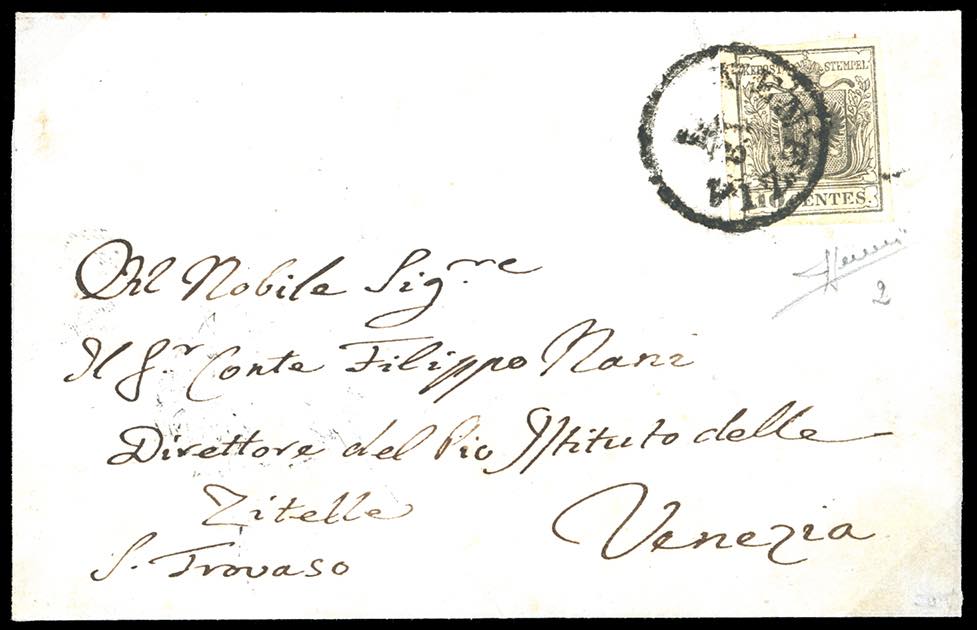 KKPOST STEMPEL
VENEZIA
10 CENTES.
2
Al Nobile Sigʳᵉ
Il Sʳ Conte Filippo Nani
Direttore del Pio Istituto delle
Zitelle
Venezia
S. Trovaso